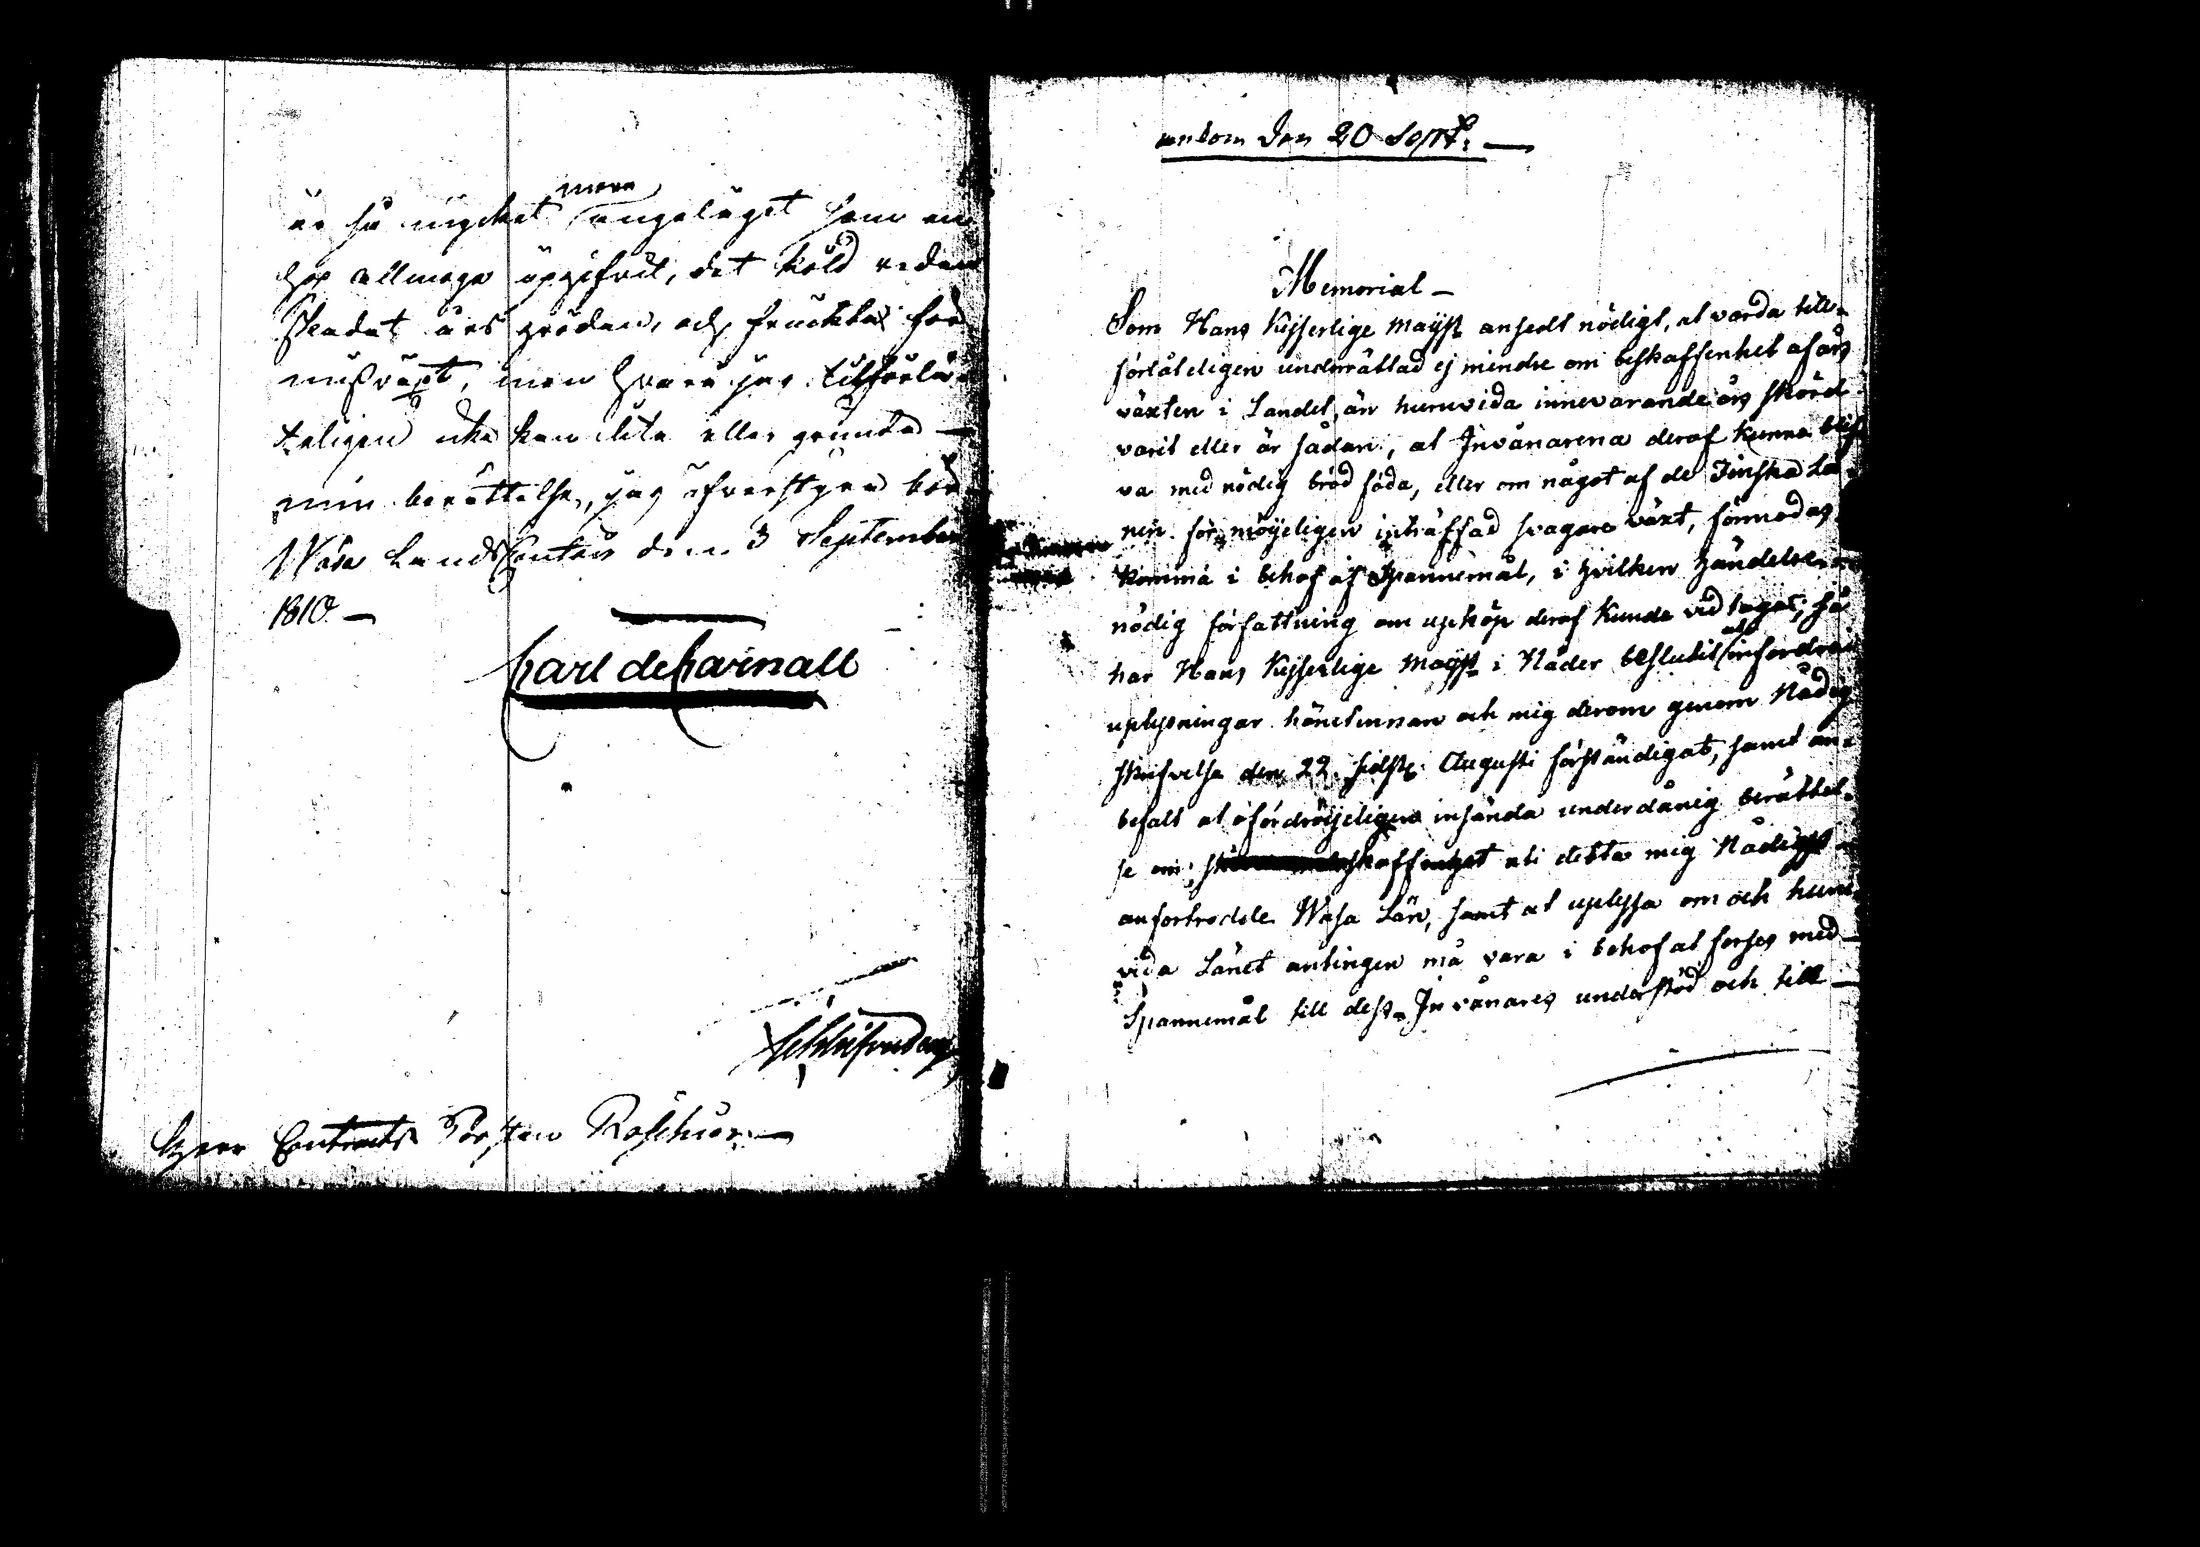 är så mycket mera angeläget som en
hop allmoge upgifvit, det köld redan
skadat års gröden, och fruktad för
missväxt, men hvarå jag tillförlå-
teligen icke kan lita eller grunda
min berättelse, jag öfverstyra bör
Wasa LandsContoir den 3 September
1810 —
Carl deCarnall
Herr Contracts Prosten Roschier. —
ankom den 20 Sept. —
Memorial —
Som Hans Kejserlige Mayst ansedt nödigt, at varda till-
förlåteligen underrättad ej mindre om beskaffenhet af års
växten i Landet, än huruvida innevarande års skörd
varit eller är sådan, at Invånarena deraf kunna blif-
va med nödig bröd föda, eller om något af de Finska Lä-
nen för möjeligen inträffad svagare växt, förmodas
komma i behof af Spannemål, i hvilken händelse
nödig författning om uphöp deraf kunde vid tagas; så
har Hans Kejserlige Mayst i Nåder beslutit att infordra
uplysningar häruttinnan och mig derom genom Nådig
skrifvelse den 22 sidstl. Augusti förständigat, samt an-
befalt at ofördröijeligen insända underdånig berättel-
se om skaffenhet uti detta mig Nådigst
anfortrodde Wasa Län, samt at uplysa om och huru-
vida Länet antingen må vara i behof at förses med
Spannemål till dess Invånares understöd och till —